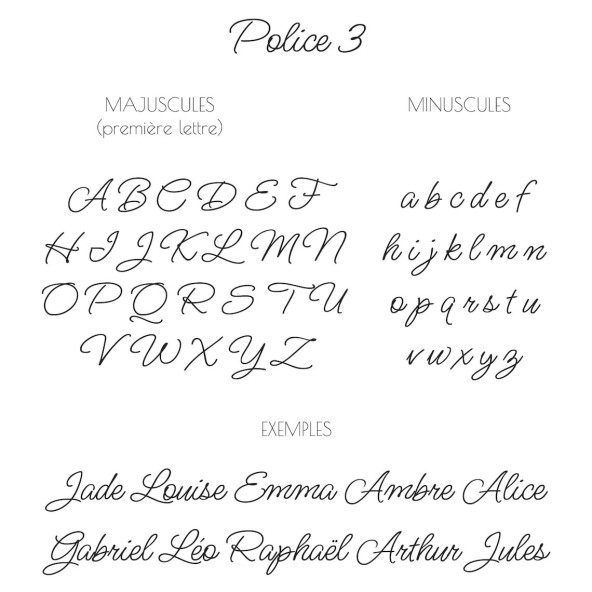 Police 3
MAJUSCULES
(première lettre)
MINUSCULES
A B C D E F
H I J K L M N
O P Q R S T U
V W X Y Z
a b c d e f
h i j k l m n
o p q r s t u
v w x y z
EXEMPLES
Jade Louise Emma Ambre Alice
Gabriel Léo Raphaël Arthur Jules